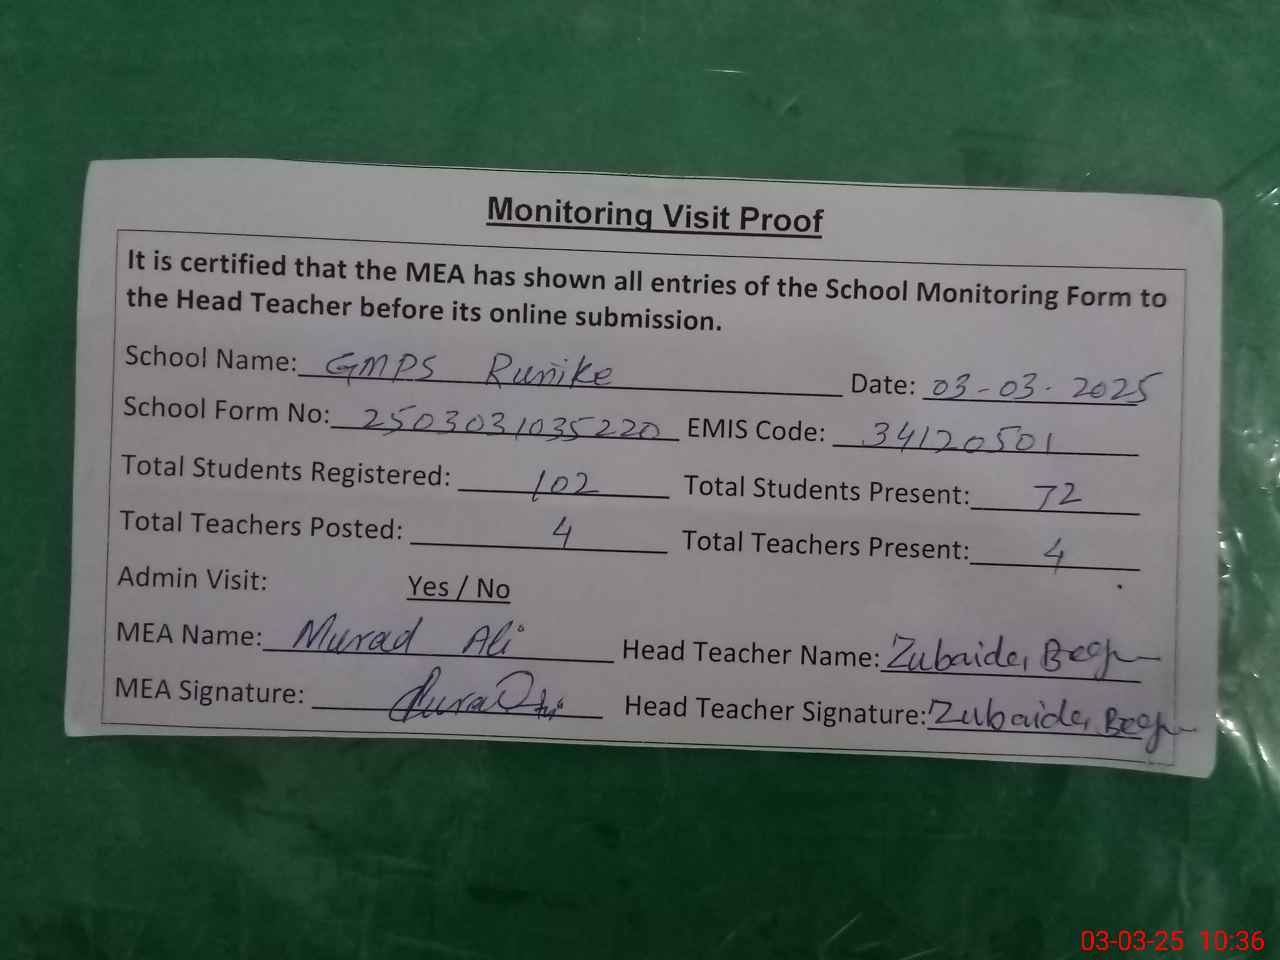 Monitoring Visit Proof
It is certified that the MEA has shown all entries of the School Monitoring Form to
the Head Teacher before its online submission.
School Name: GMPS Runike Date: 03-03-2025
School Form No: 2503031035220 EMIS Code: 34120501
Total Students Registered: 102 Total Students Present: 72
Total Teachers Posted: 4 Total Teachers Present: 4
Admin Visit: Yes / No
MEA Name: Murad Ali Head Teacher Name: Zubaida
MEA Signature: Head Teacher Signature: Zubaida
03-03-25 10:36